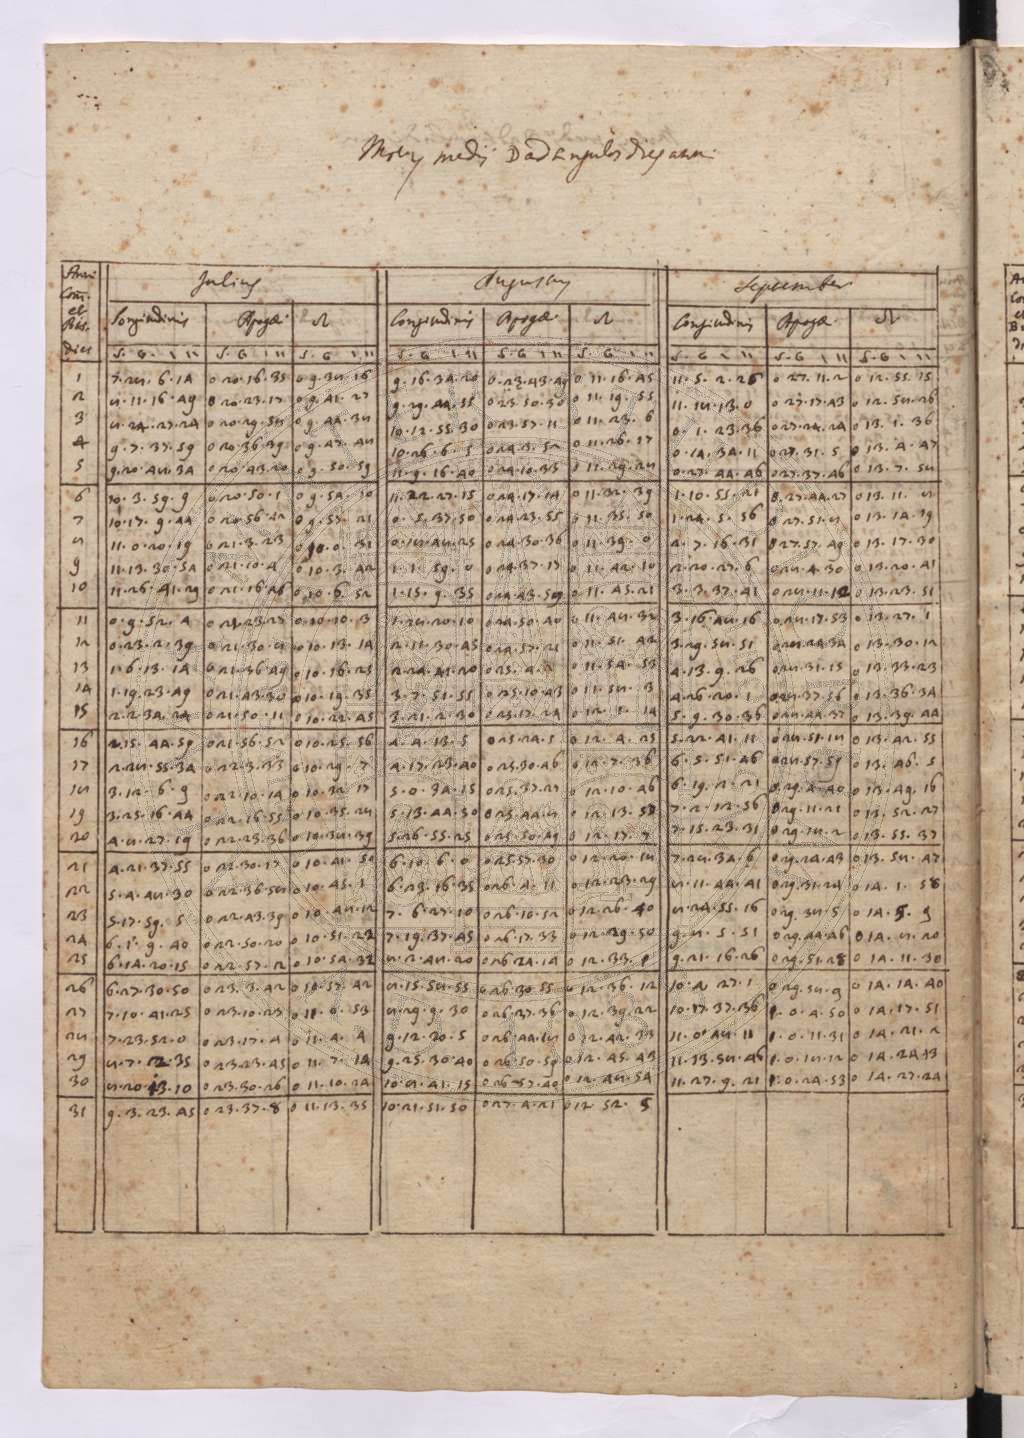 Motus medij D ad singulos dies anni
Anni Com. et Bis. dies | Julius | Augustus | September
Longitudinis | Apogei | ☊ | Longitudinis | Apogei | ☊ | Longitudinis | Apogei | ☊
S. G. ' '' | S. G. ' '' | S. G. ' '' | S. G. ' '' | S. G. ' '' | S. G. ' '' | S. G. ' '' | S. G. ' '' | S. G. ' ''
1 7.28.6.14 0 20.16.35 0 9.38.16 9.16.34.20 0.23.43.49 0 11.16.45 11.5.2.26 0 27.11.2 0 12.55.15
2 8.11.16.49 0 20.23.17 0 9.41.27 9.29.44.55 0 23.50.30 0 11.19.55 11.18.13.0 0 27.17.43 0 12.58.26
3 8.24.27.24 0 20.29.58 0 9.44.38 10.12.55.30 0 23.57.11 0 11.23.6 0.1.23.36 0 27.24.24 0 13.1.36
4 9.7.37.59 0 20.36.39 0 9.47.48 10.26.6.5 0 24.3.52 0 11.26.17 0.14.34.11 0 27.31.5 0 13.4.47
5 9.20.48.34 0 20.43.20 0 9.50.59 11.9.16.40 0 24.10.33 0 11.29.28 0.27.44.46 0 27.37.46 0 13.7.58
6 10.3.59.9 0 20.50.1 0 9.54.10 11.22.27.15 0 24.17.14 0 11.32.39 1.10.55.21 0 27.44.27 0 13.11.8
7 10.17.9.44 0 20.56.42 0 9.57.21 0.5.37.50 0 24.23.55 0 11.35.50 1.24.5.56 0 27.51.8 0 13.14.19
8 11.0.20.19 0 21.3.23 0 10.0.31 0.18.48.25 0 24.30.36 0 11.39.0 2.7.16.31 0 27.57.49 0 13.17.30
9 11.13.30.54 0 21.10.4 0 10.3.42 1.1.59.0 0 24.37.17 0 11.42.10 2.20.27.6 0 28.4.30 0 13.20.41
10 11.26.41.29 0 21.16.46 0 10.6.52 1.15.9.35 0 24.43.59 0 11.45.21 3.3.37.41 0 28.11.12 0 13.23.51
11 0.9.52.4 0 21.23.27 0 10.10.3 1.28.20.10 0 24.50.40 0 11.48.32 3.16.48.16 0 28.17.53 0 13.27.1
12 0.23.2.39 0 21.30.8 0 10.13.14 2.11.30.45 0 24.57.21 0 11.51.42 3.29.58.51 0 28.24.34 0 13.30.12
13 1.6.13.14 0 21.36.49 0 10.16.25 2.24.41.20 0 25.4.2 0 11.54.53 4.13.9.26 0 28.31.15 0 13.33.23
14 1.19.23.49 0 21.43.30 0 10.19.35 3.7.51.55 0 25.10.43 0 11.58.3 4.26.20.1 0 28.37.56 0 13.36.34
15 2.2.34.24 0 21.50.11 0 10.22.45 3.21.2.30 0 25.17.24 0 12.1.14 5.9.30.36 0 28.44.37 0 13.39.44
16 2.15.44.59 0 21.56.52 0 10.25.56 4.4.13.5 0 25.24.5 0 12.4.25 5.22.41.11 0 28.51.18 0 13.42.55
17 2.28.55.34 0 22.3.33 0 10.29.7 4.17.23.40 0 25.30.46 0 12.7.36 6.5.51.46 0 28.57.59 0 13.46.5
18 3.12.6.9 0 22.10.14 0 10.32.17 5.0.34.15 0 25.37.27 0 12.10.46 6.19.2.21 0 29.4.40 0 13.49.16
19 3.25.16.44 0 22.16.55 0 10.35.28 5.13.44.50 0 25.44.8 0 12.13.57 7.2.12.56 0 29.11.21 0 13.52.27
20 4.8.27.19 0 22.23.36 0 10.38.39 5.26.55.25 0 25.50.49 0 12.17.7 7.15.23.31 0 29.18.2 0 13.55.37
21 4.21.37.55 0 22.30.17 0 10.41.50 6.10.6.0 0 25.57.30 0 12.20.18 7.28.34.6 0 29.24.43 0 13.58.47
22 5.4.48.30 0 22.36.58 0 10.45.1 6.23.16.35 0 26.4.11 0 12.23.29 8.11.44.41 0 29.31.24 0 14.1.58
23 5.17.59.5 0 22.43.39 0 10.48.12 7.6.27.10 0 26.10.52 0 12.26.40 8.24.55.16 0 29.38.5 0 14.5.9
24 6.1.9.40 0 22.50.20 0 10.51.22 7.19.37.45 0 26.17.33 0 12.29.50 9.8.5.51 0 29.44.46 0 14.8.20
25 6.14.20.15 0 22.57.2 0 10.54.32 8.2.48.20 0 26.24.14 0 12.33.1 9.21.16.26 0 29.51.28 0 14.11.30
26 6.27.30.50 0 23.3.42 0 10.57.42 8.15.58.55 0 26.30.55 0 12.36.12 10.4.27.1 0 29.58.9 0 14.14.40
27 7.10.41.25 0 23.10.23 0 11.0.53 8.29.9.30 0 26.37.36 0 12.39.22 10.17.37.36 1.0.4.50 0 14.17.51
28 7.23.52.0 0 23.17.4 0 11.4.4 9.12.20.5 0 26.44.18 0 12.42.33 11.0.48.11 1.0.11.31 0 14.21.2
29 8.7.2.35 0 23.23.45 0 11.7.14 9.25.30.40 0 26.50.59 0 12.45.43 11.13.58.46 1.0.18.12 0 14.24.13
30 8.20.13.10 0 23.30.26 0 11.10.24 10.8.41.15 0 26.57.40 0 12.48.54 11.27.9.21 1.0.24.53 0 14.27.24
31 9.3.23.45 0 23.37.8 0 11.13.35 10.21.51.50 0 27.4.21 0 12.52.5